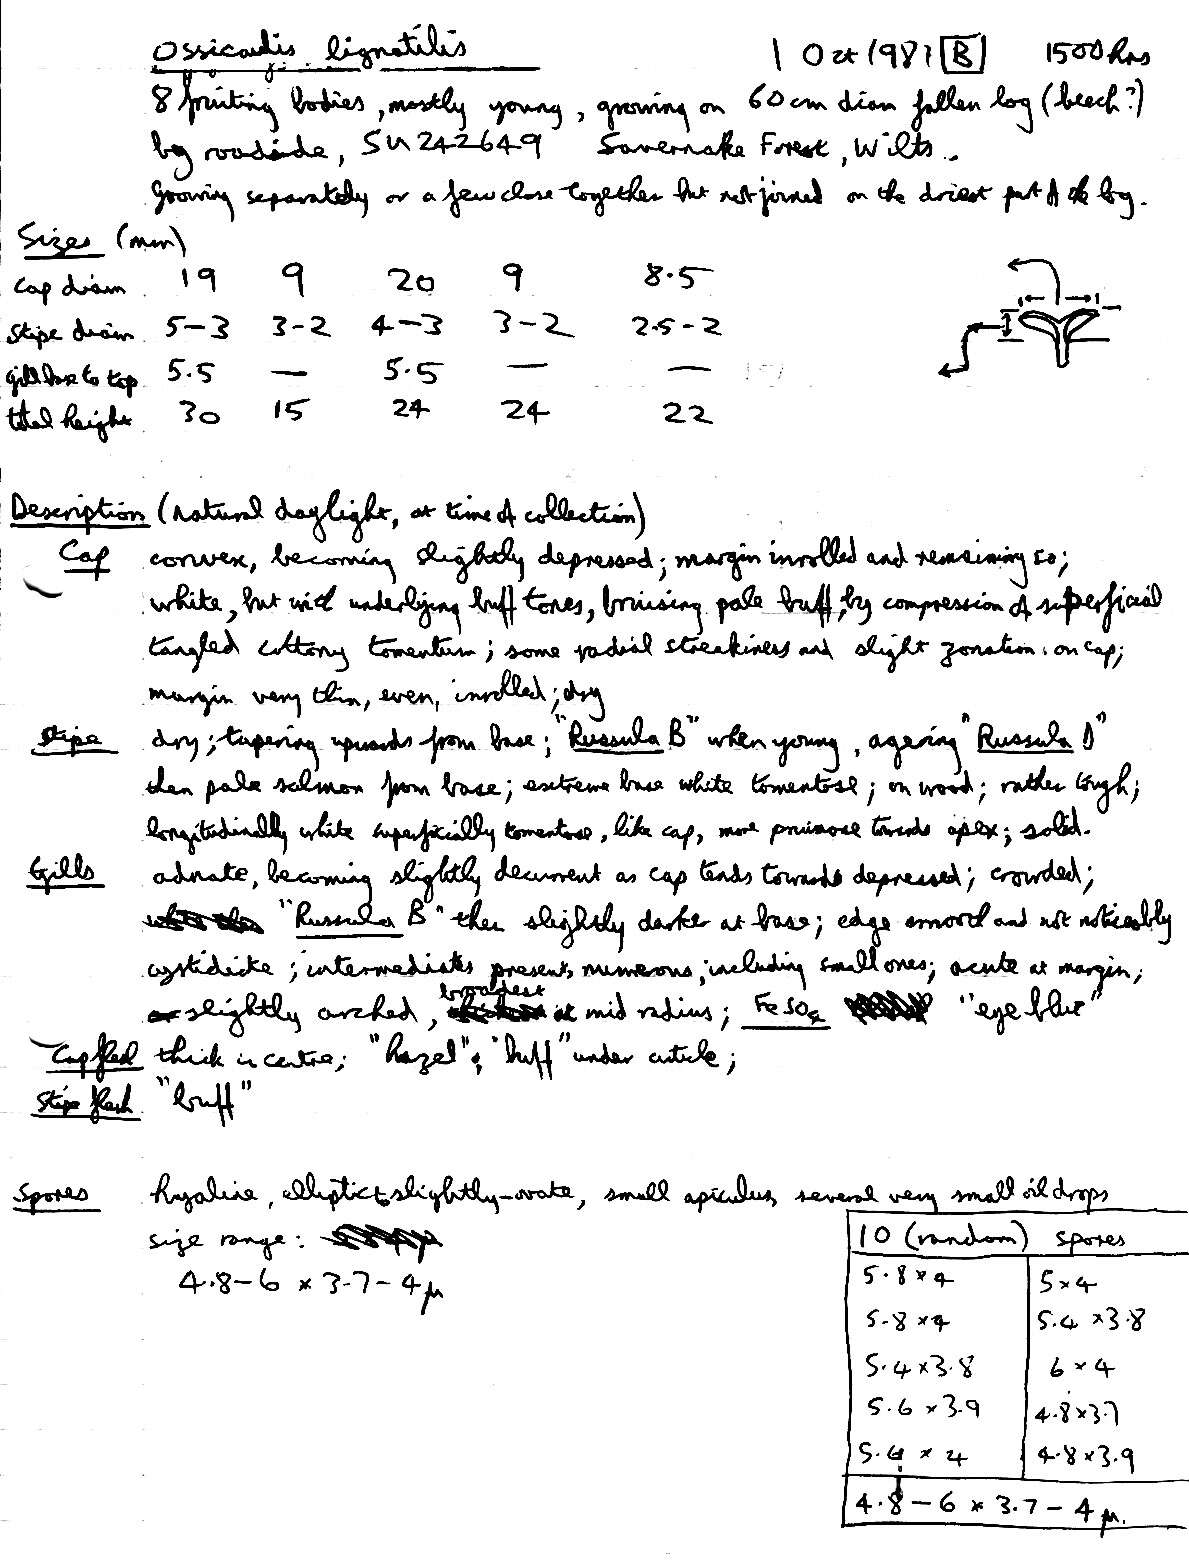 Ossicaulis lignatilis 1 Oct 1981 B 1500hrs
8 fruiting bodies, mostly young, growing on 60cm diam fallen log (beech?)
by roadside, SU242649 Savernake Forest, Wilts.
Growing separately or a few close together but not joined on the driest part of the log.
Sizes (mm)
Cap diam 19 9 20 9 8.5
Stipe diam 5-3 3-2 4-3 3-2 2.5-2
gill base to top 5.5 — 5.5 — —
total height 30 15 24 24 22
Description (natural daylight, at time of collection)
Cap convex, becoming slightly depressed; margin inrolled and remaining so;
white, but with underlying buff tones, bruising pale buff, by compression of superficial
tangled cottony tomentum; some radial streakiness and slight zonation on cap;
margin very thin, even, inrolled; dry
Stipe dry; tapering upwards from base; "Russula B" when young, ageing "Russula D"
then pale salmon from base; extreme base white tomentose; on wood; rather tough;
longitudinally white superficially tomentose, like cap, more pruinose towards apex; solid.
Gills adnate, becoming slightly decurrent as cap tends towards depressed; crowded;
"Russula B" then slightly darker at base; edge smooth and not noticeably
cystidiate; intermediates present, numerous, including small ones; acute at margin;
slightly arched, broadest at mid radius; FeSO4 "eye blue"
Cap flesh thick in centre; "hazel"; "buff" under cuticle;
Stipe flesh "buff"
Spores hyaline, elliptic + slightly-ovate, small apiculus, several very small oil drops
size range:
4.8-6 × 3.7-4 μ
10 (random) spores
5.8 × 4 5 × 4
5.8 × 4 5.4 × 3.8
5.4 × 3.8 6 × 4
5.6 × 3.9 4.8 × 3.7
5.4 × 4 4.8 × 3.9
4.8-6 × 3.7-4 μ.